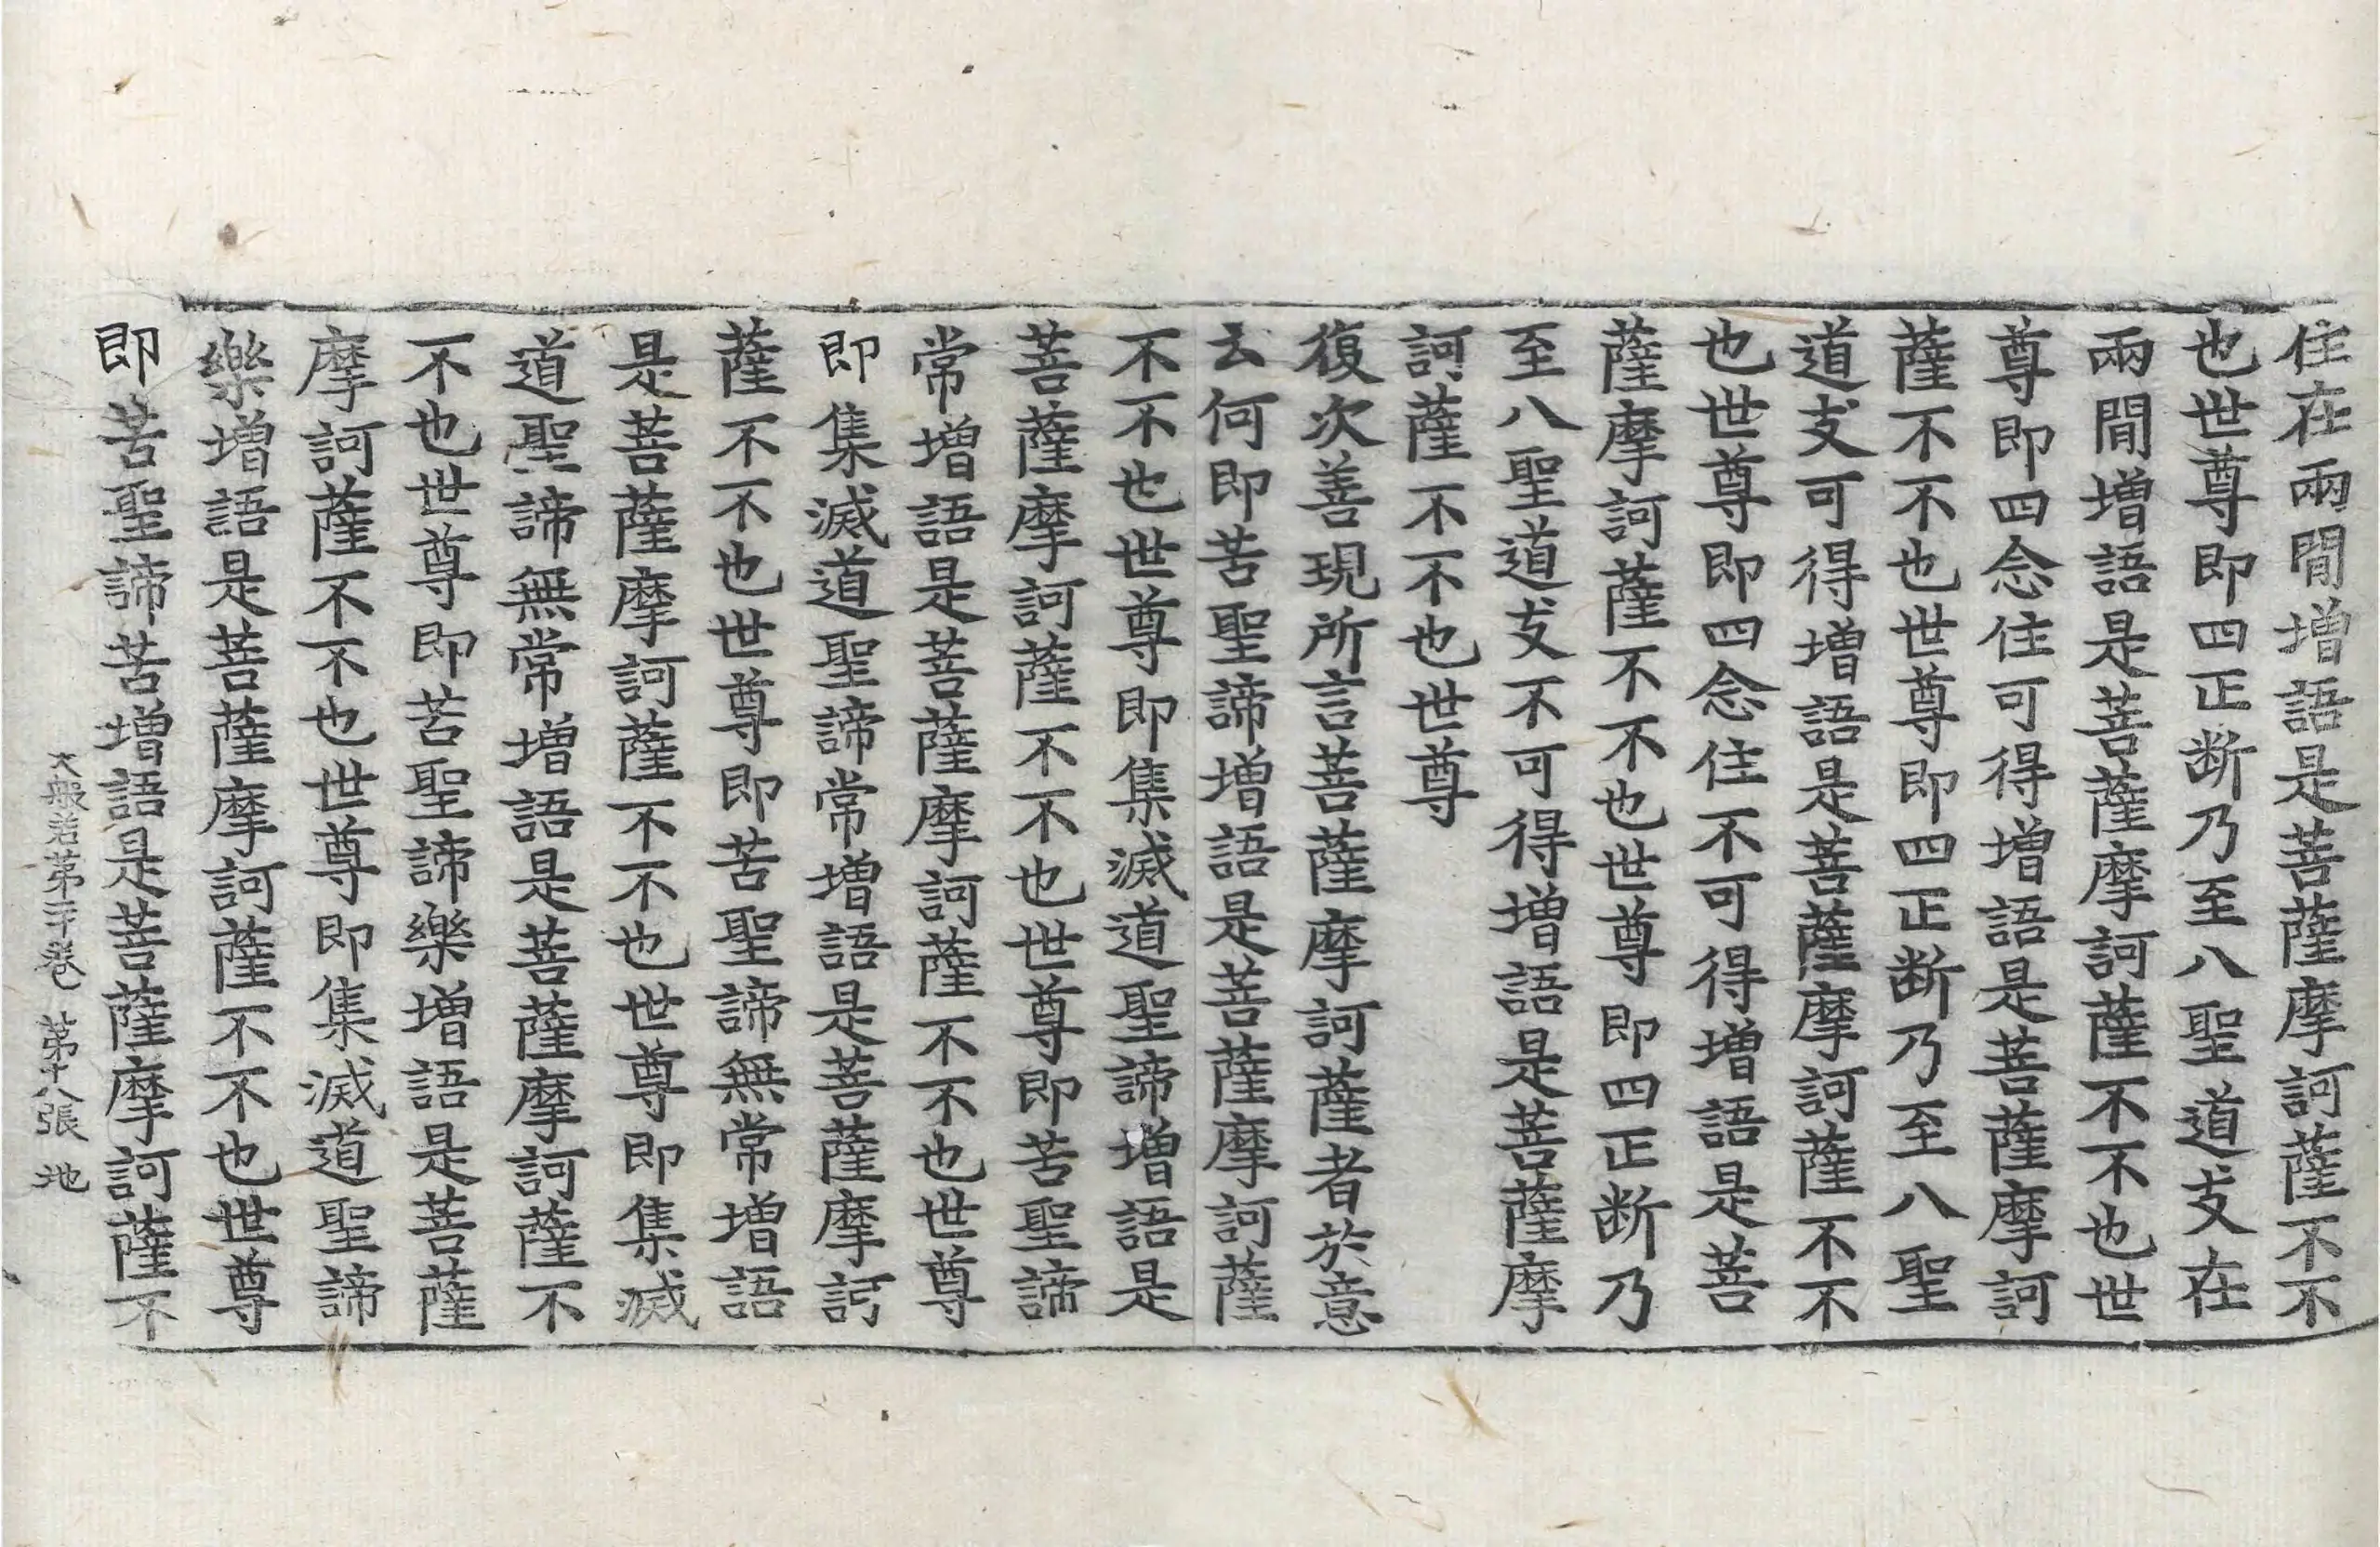 住在兩閒增語是菩薩摩訶薩不不
也世尊即四正断乃至八聖道支在
兩閒增語是菩薩摩訶薩不不也世
尊即四念住可得增語是菩薩摩訶
薩不不也世尊即四正断乃至八聖
道支可得增語是菩薩摩訶薩不不
也世尊即四念住不可得增語是菩
薩摩訶薩不不也世尊即四正断乃
至八聖道支不可得增語是菩薩摩
訶薩不不也世尊
復次善現所言菩薩摩訶薩者於意
云何即苦聖諦增語是菩薩摩訶薩
不不也世尊即集滅道聖諦增語是
菩薩摩訶薩不不也世尊即苦聖諦
常增語是菩薩摩訶薩不不也世尊
即集滅道聖諦常增語是菩薩摩訶
薩不不也世尊即苦聖諦無常增語
是菩薩摩訶薩不不也世尊即集滅
道聖諦無常增語是菩薩摩訶薩不
不也世尊即苦聖諦樂增語是菩薩
摩訶薩不不也世尊即集滅道聖諦
樂增語是菩薩摩訶薩不不也世尊
即苦聖諦苦增語是菩薩摩訶薩不
大般若第二十卷 第十八張 地